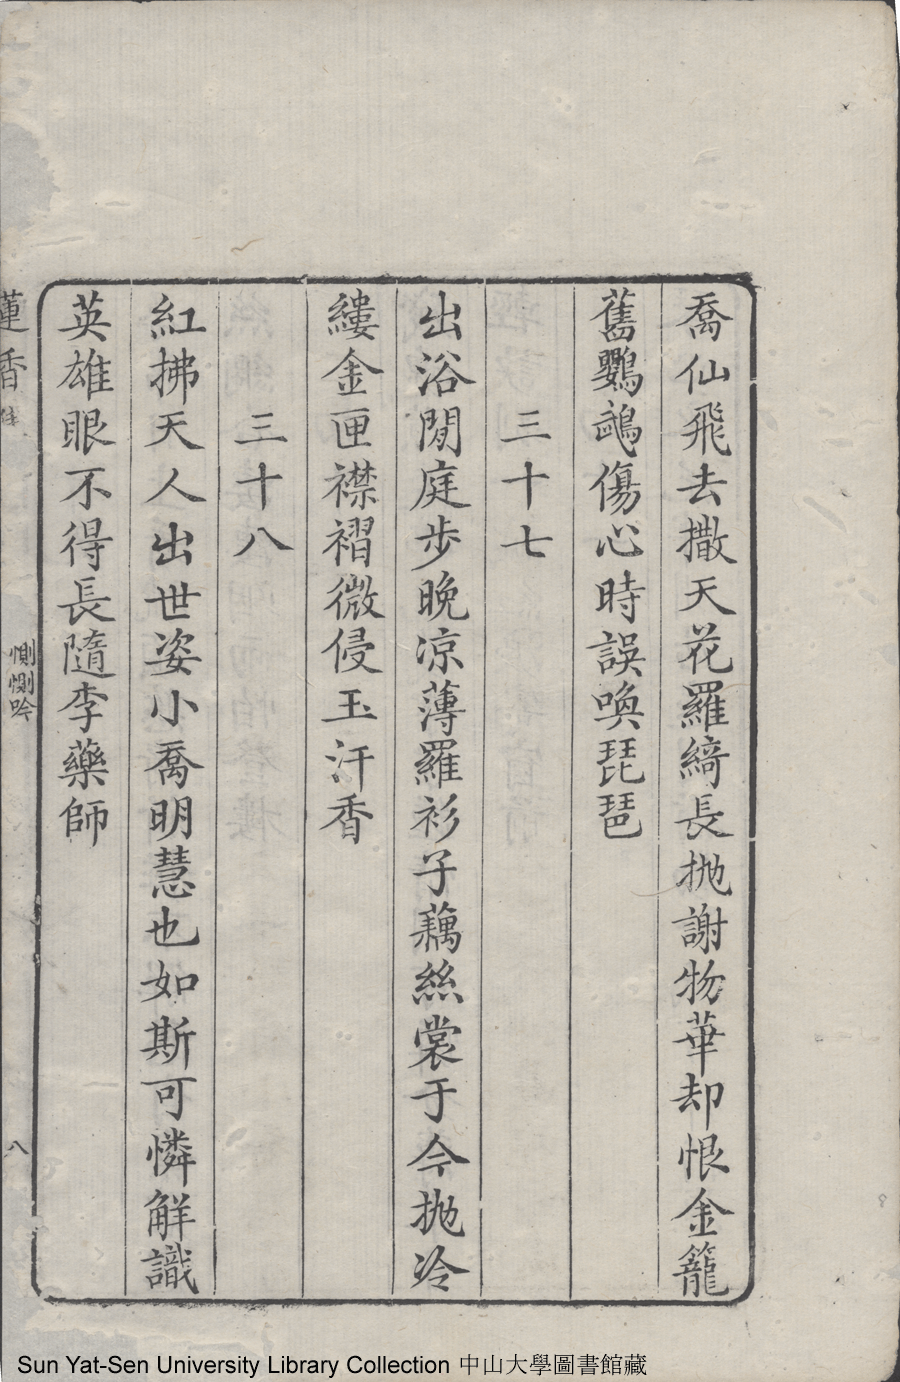 喬仙飛去撒天花羅綺長抛謝物華却恨金籠
舊鸚鵡傷心時誤喚琵琶
三十七
出浴閒庭步晚凉薄羅衫子藕絲裳于今抛冷
縷金匣襟褶微侵玉汗香
三十八
紅拂天人出世姿小喬明慧也如斯可憐解識
英雄眼不得長隨李藥師
蓮香
惻惻吟
八
Sun Yat-Sen University Library Collection 中山大學圖書館藏